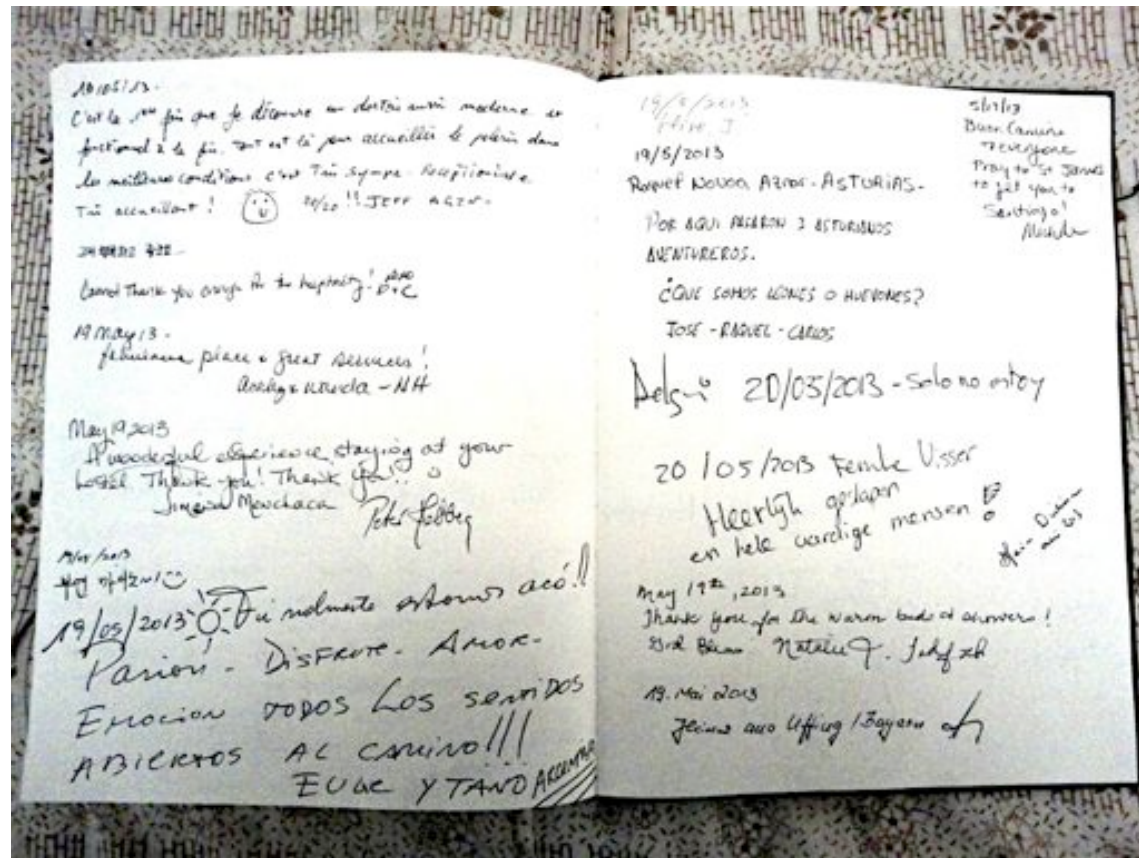 C'est la 1ère fois que je découvre un dortoir aussi moderne et
fonctionnel à la fois. Tout est là pour accueillir le pèlerin dans
les meilleures conditions c'est Très sympa. Réceptionniste
Très accueillant ! 20/20 !! JEFF
Cannot Thank you enough for the hospitality!
19 May 13.
fabulous place & great services!
- NH
May 19, 2013
A wonderful experience staying at your
hostel. Thank you! Thank you!!
Menchaca
Peter
19/05/2013 Finalmente estamos acá!!
Pasion - DISFRUTE - AMOR -
EMOCION TODOS LOS SENTIDOS
ABIERTOS AL CAMINO!!!
EUGE Y TANO ARGENTINA
19/5/2013
19/5/2013
Raquel Novoa Aznar - ASTURIAS -
POR AQUI PASARON 3 ASTURIANOS
AVENTUREROS.
¿QUE SOMOS LEONES O HUEVONES?
JOSE - RAQUEL - CARLOS
5/19/13
Buen Camino
everyone
Pray to St James
to get you to
Santiago!
20/05/2013 - Solo no estoy
20/05/2013 Femke Visser
Heerlijk geslapen
en hele aardige mensen!
May 19th, 2013
Thank you for the warm beds & showers!
God Bless Natalie
19. Mai 2013
aus Uffing / Bayern